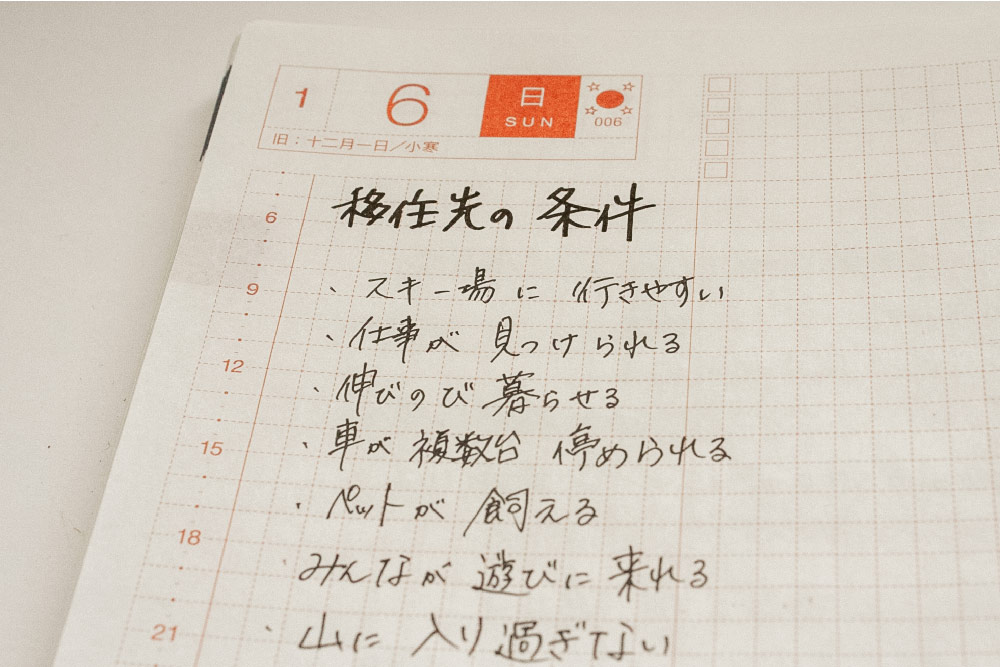 1 6 日 SUN 006
旧：十二月一日／小寒
移住先の 条件
6
・スキー場に 行きやすい
9
・仕事が 見つけられる
12
・伸びのび 暮らせる
・車が 複数台 停められる
15
・ペットが 飼える
18
みんなが 遊びに 来れる
・山に 入り過ぎてない
21